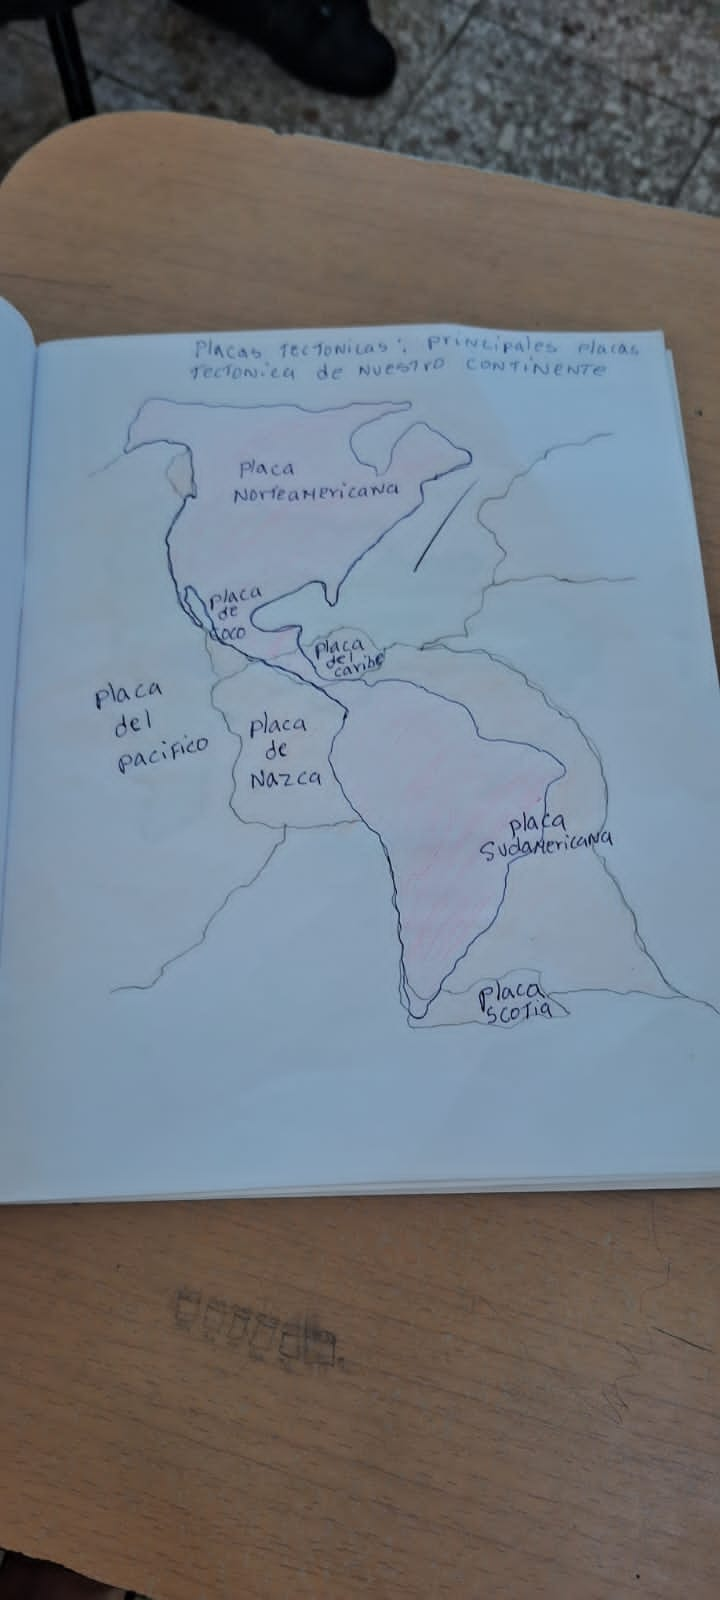 Placas Tectonicas: principales placas
Tectonica de Nuestro Continente
Placa
Norteamericana
Placa
de
coco
Placa
del
caribe
Placa
del
pacifico
Placa
de
Nazca
placa
Sudamericana
placa
scotia